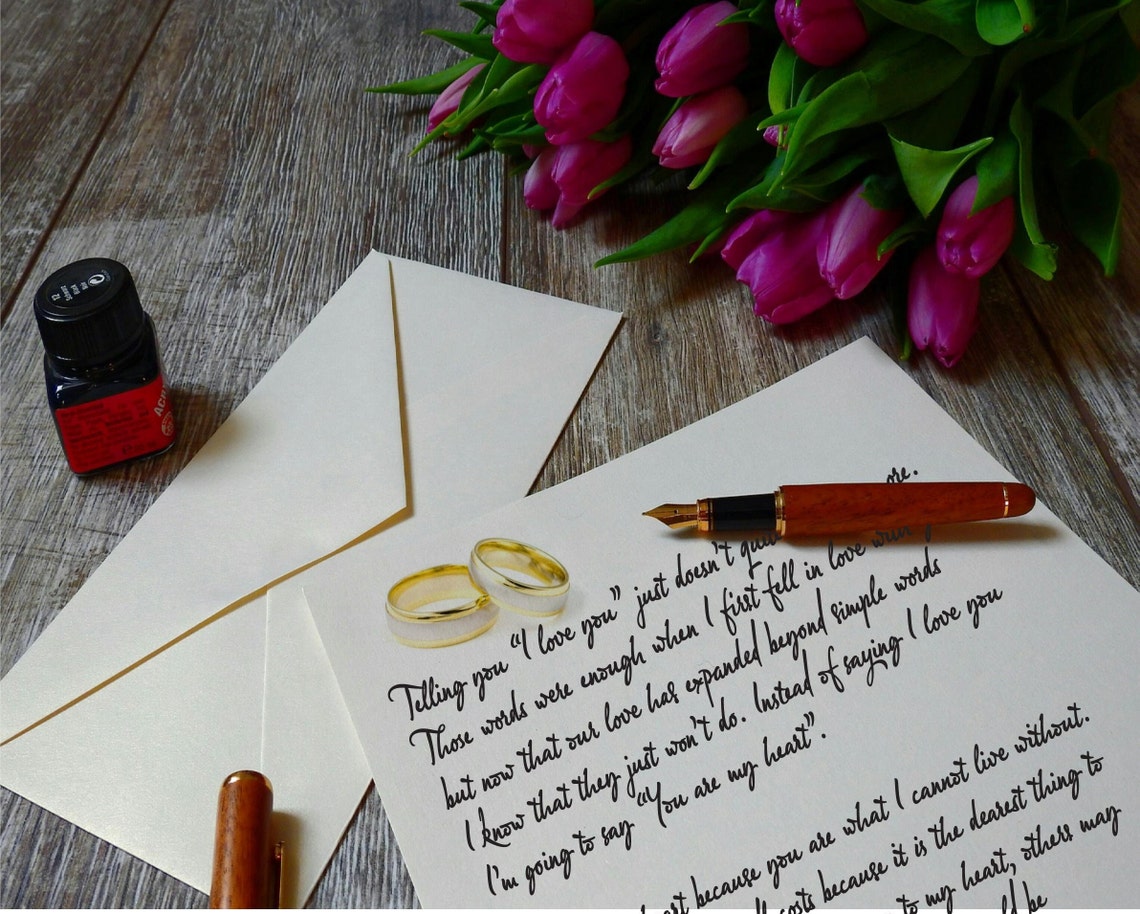 Telling you “I love you” just doesn't ore.
Those words were enough when I first fell in love
but now that our love has expanded beyond simple words
I know that they just won't do. Instead of saying I love you
I'm going to say “You are my heart”.
because you are what I cannot live without.
costs because it is the dearest thing to
to my heart, others may
be